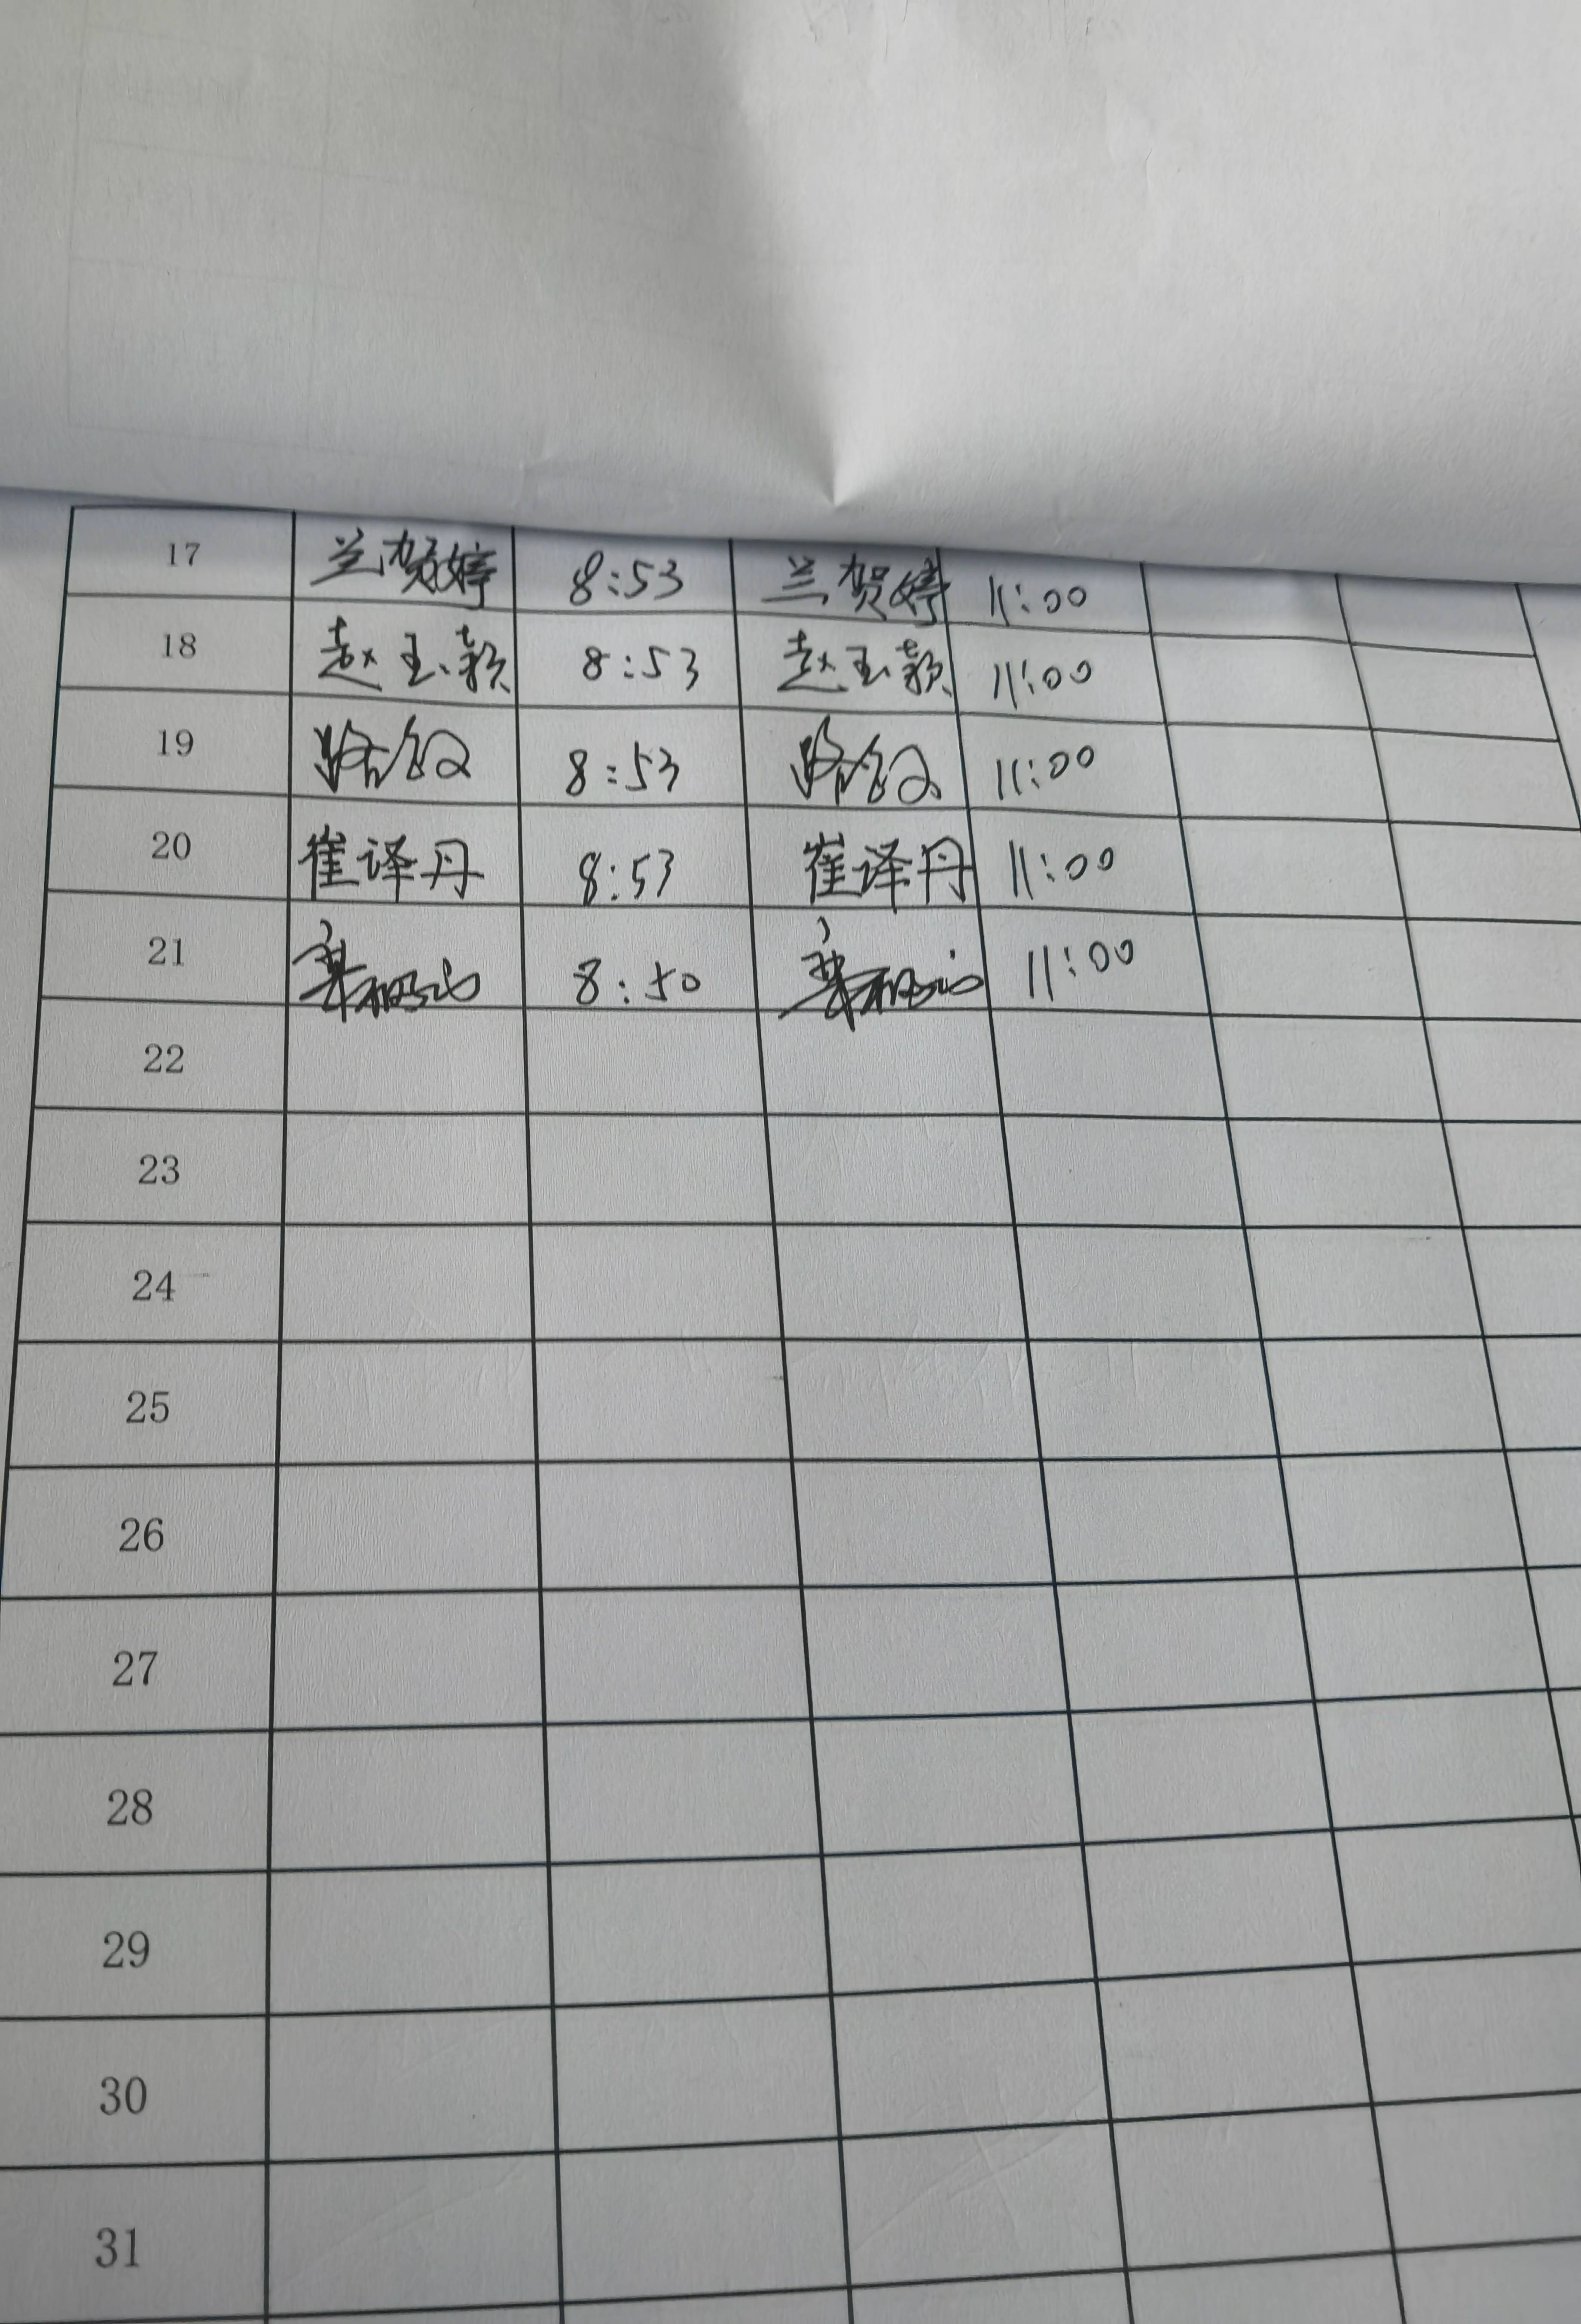 17 兰贺婷 8:53 兰贺婷 11:00
18 赵玉颖 8:53 赵玉颖 11:00
19 8:53 11:00
20 崔译丹 8:53 崔译丹 11:00
21 8:50 11:00
22
23
24
25
26
27
28
29
30
31